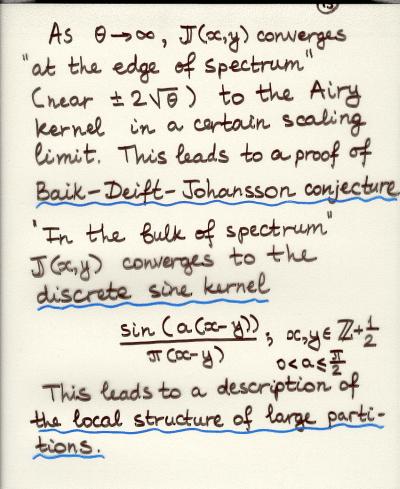 As θ→∞, J(x,y) converges
"at the edge of spectrum"
(near ±2√θ) to the Airy
kernel in a certain scaling
limit. This leads to a proof of
Baik-Deift-Johansson conjecture
"In the bulk of spectrum"
J(x,y) converges to the
discrete sine kernel
sin(a(x-y)) / π(x-y) ; x,y ∈ ℤ+1/2
0<a≤π/2
This leads to a description of
the local structure of large parti-
tions.